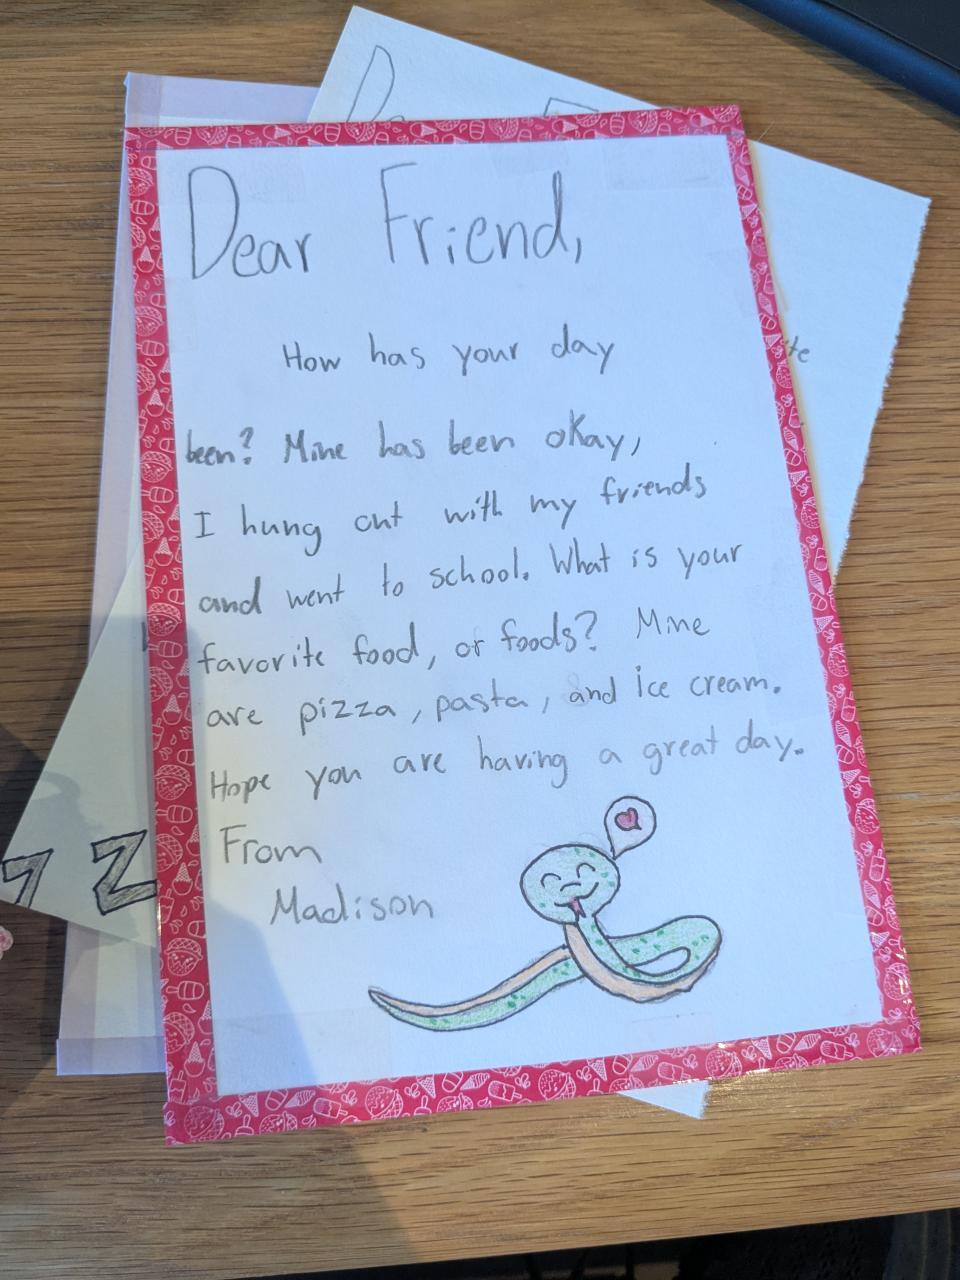 Dear Friend,
How has your day
been? Mine has been okay,
I hung out with my friends
and went to school. What is your
favorite food, or foods? Mine
are pizza, pasta, and ice cream.
Hope you are having a great day.
From
Madison
zz